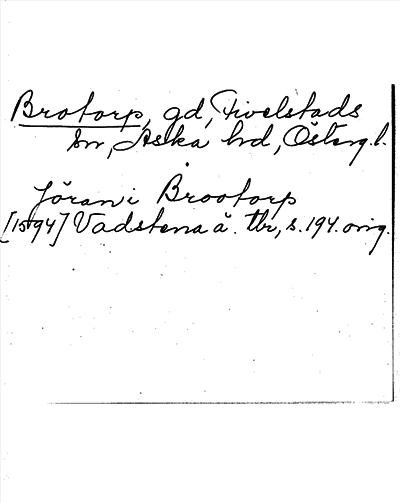 Brotorp, gd, Fivelstads
sn, Aska hd, Östergl.
Jöran i Brootorp
[1594] Vadstena ä. tbr, s. 194. orig.